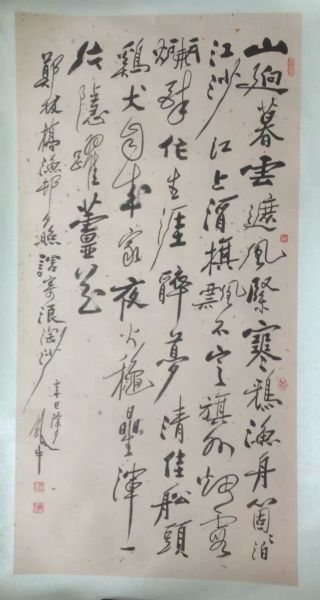 山迥暮雲遮風緊寒鵶漁舟箇箇泊
江沙江上酒旗飄不定旗外烟霞
爛醉作生涯醉夢清佳船頭
鷄犬自成家夜火穐星渾一
片隱躍蘆花
鄭板橋漁邨夕照調寄浪淘沙
辛巳除夕